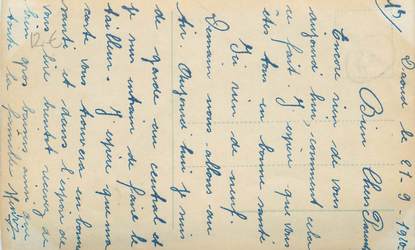 13
Daoud le 27-9-19
Bien Chers Parents
Encore rien de vous
aujourd hui, comment cela
se fait. J'espère que vous
êtes tous en bonne santé
J'ai rien de neuf.
Demain nous allons au
tir. Aujourd'hui j'y suis
de garde au central et
je suis entrain de faire le
tailleur. J'espère que ma
carte vous trouvera en bonne
santé et dans l'espoir de
vous lire bientôt recevez de
gros baisers ainsi que
toute la famille